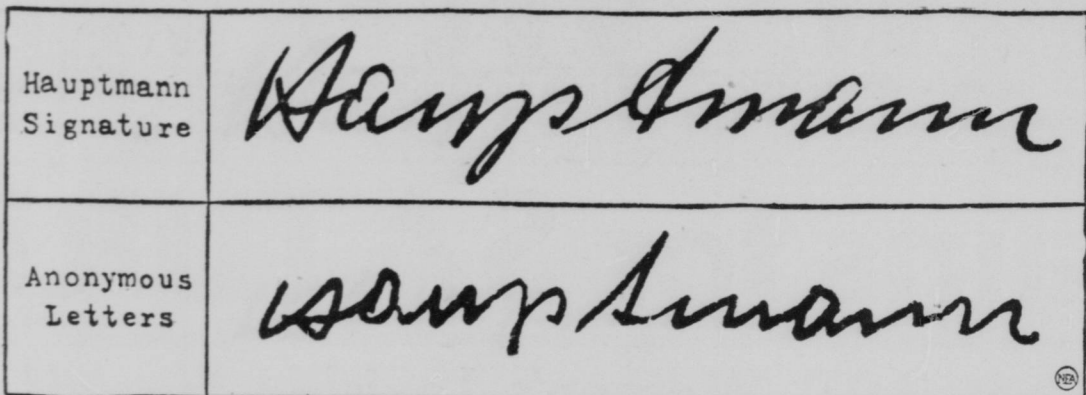 Hauptmann
Signature
Hauptmann
Anonymous
Letters
Hauptmann
NEA